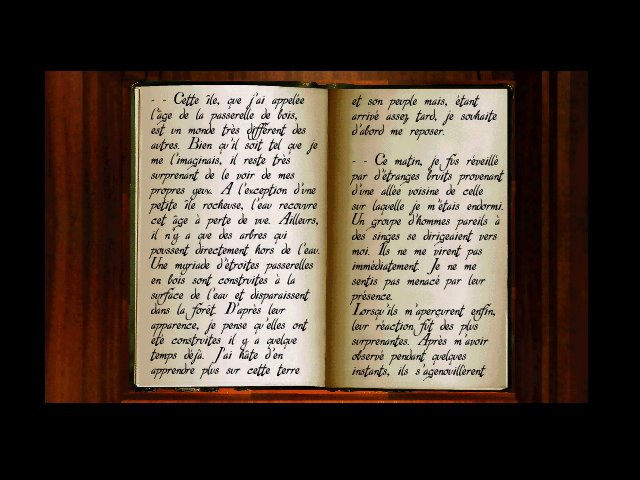 - - Cette île, que j'ai appelée
l'âge de la passerelle de bois,
est un monde très différent des
autres. Bien qu'il soit tel que je
me l'imaginais, il reste très
surprenant de le voir de mes
propres yeux. A l'exception d'une
petite île rocheuse, l'eau recouvre
cet âge à perte de vue. Ailleurs,
il n'y a que des arbres qui
poussent directement hors de l'eau.
Une myriade d'étroites passerelles
en bois sont construites à la
surface de l'eau et disparaissent
dans la forêt. D'après leur
apparence, je pense qu'elles ont
été construites il y a quelque
temps déjà. J'ai hâte d'en
apprendre plus sur cette terre
et son peuple mais, étant
arrivé assez tard, je souhaite
d'abord me reposer.
- - Ce matin, je fus réveillé
par d'étranges bruits provenant
d'une allée voisine de celle
sur laquelle je m'étais endormi.
Un groupe d'hommes pareils à
des singes se dirigeaient vers
moi. Ils ne me virent pas
immédiatement. Je ne me
sentis pas menacé par leur
présence.
Lorsqu'ils m'aperçurent enfin,
leur réaction fut des plus
surprenantes. Après m'avoir
observé pendant quelques
instants, ils s'agenouillèrent